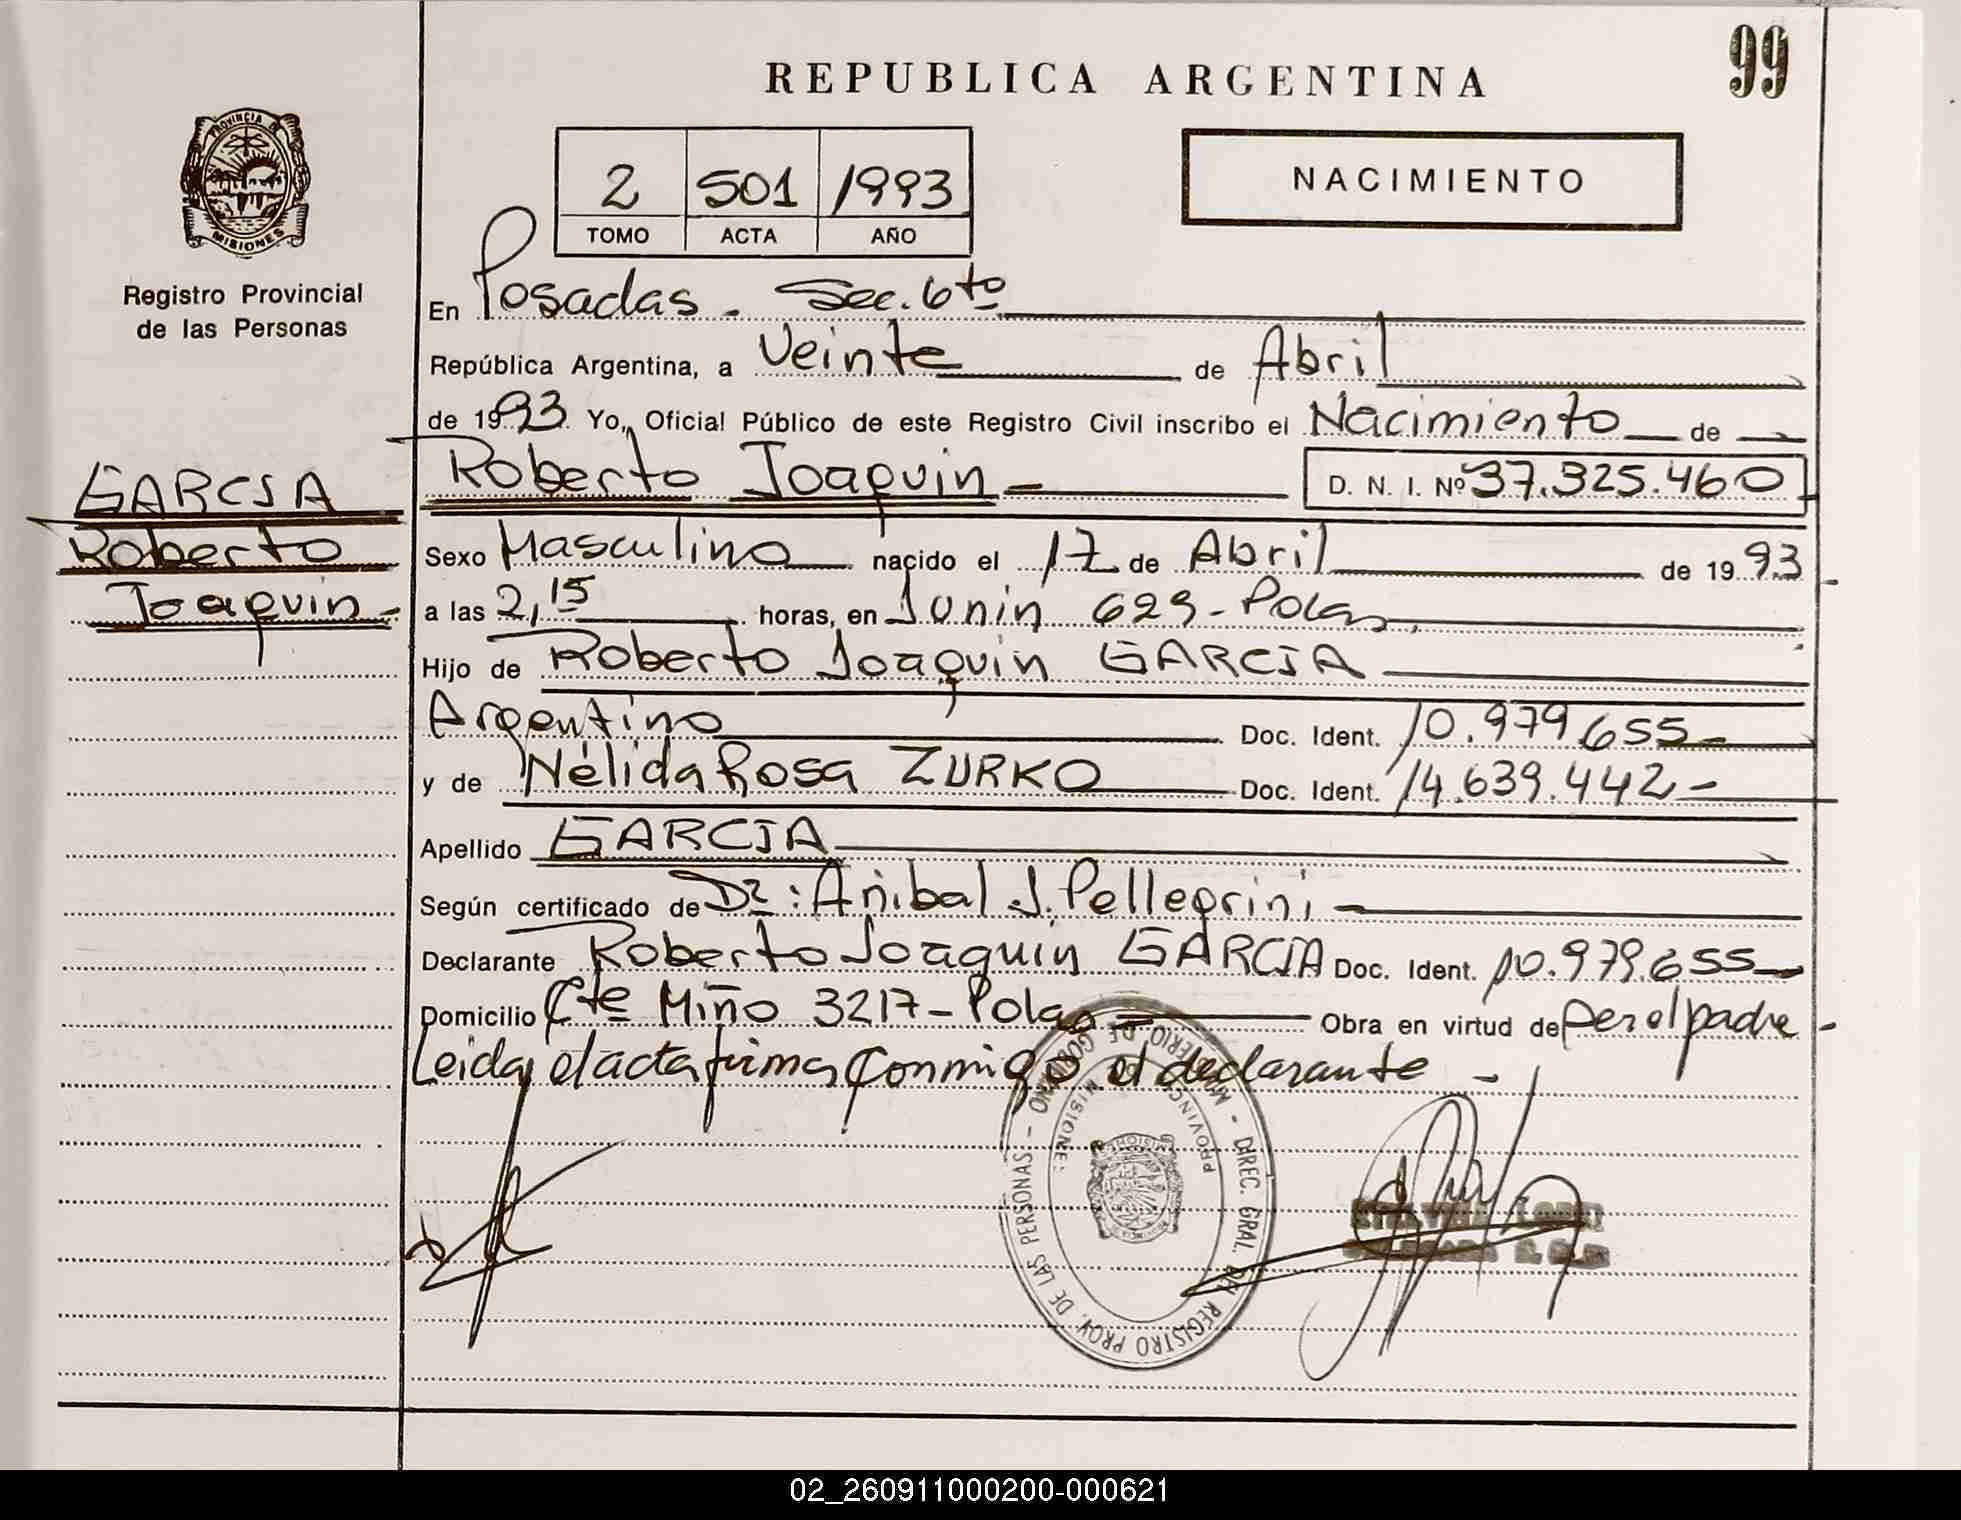 99
REPUBLICA ARGENTINA
PROVINCIA DE
MISIONES
Registro Provincial
de las Personas
2 501 1993
TOMO ACTA AÑO
NACIMIENTO
En Posadas - Sec. 6to
República Argentina, a Veinte de Abril
de 1993 Yo, Oficial Público de este Registro Civil inscribo el Nacimiento de
GARCIA
Roberto
Joaquin
Roberto Joaquin - D. N. I. Nº 37.325.460
Sexo Masculino nacido el 17 de Abril de 1993
a las 2,15 horas, en Junin 629 - Pdas,
Hijo de Roberto Joaquin GARCIA
Argentino Doc. Ident. 10.979.655-
y de Nélida Rosa ZURKO Doc. Ident. 14.639.442-
Apellido GARCIA
Según certificado de Dr: Anibal J. Pellegrini -
Declarante Roberto Joaquin GARCIA Doc. Ident. 10.979.655-
Domicilio Cte Miño 3217 - Pdas - Obra en virtud de ser el padre -
Leida el acta firma conmigo el declarante -
MINISTERIO DE GOBIERNO - DIREC. GRAL. DEL REGISTRO PROV. DE LAS PERSONAS -
PROVINCIA MISIONES
02_260911000200-000621